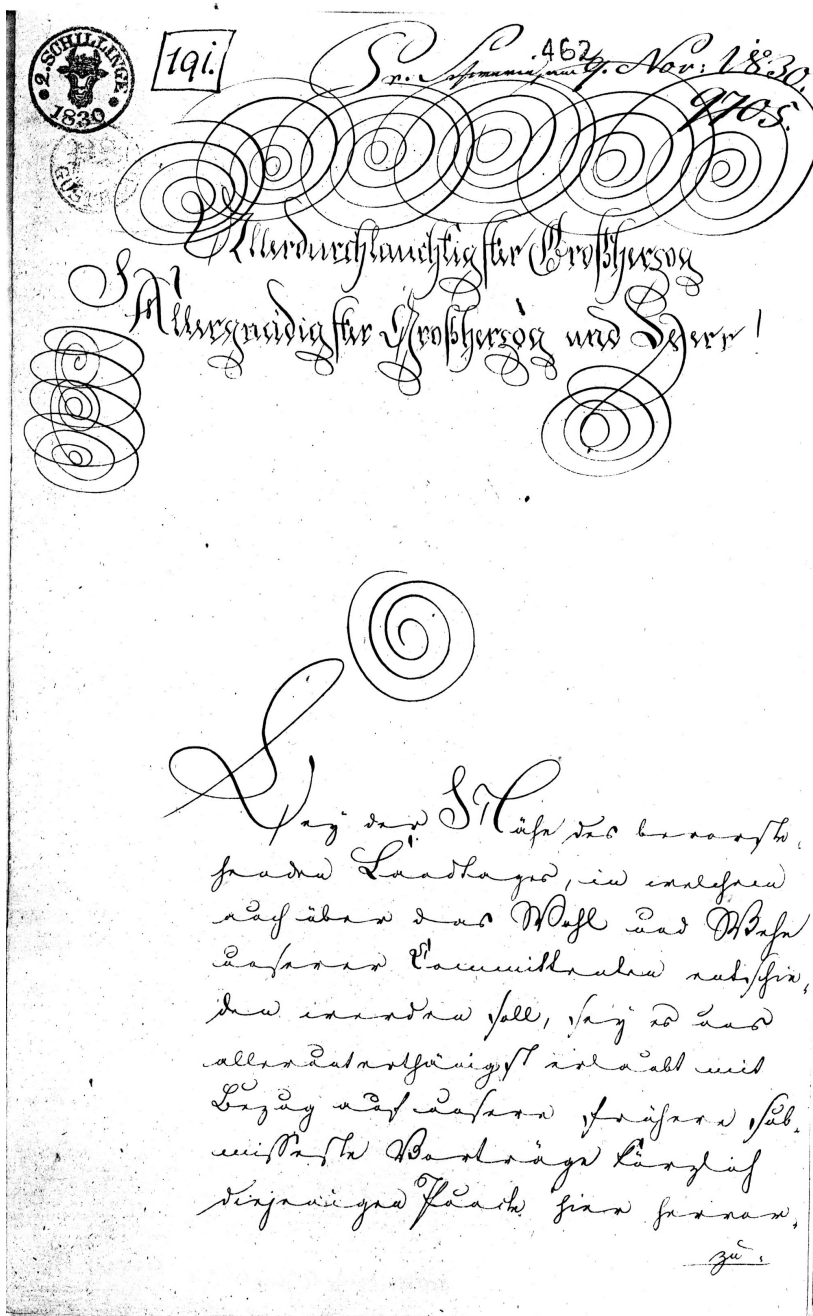 2. SCHILLINGE
1830
19i.
462
Pr. Schwerin am 9. Nov: 1830.
9705.
Allerdurchlauchtigster Großherzog
Allergnädigster Großherzog und Herr!
Bey der Nähe des bevorste-
henden Landtages, in welchem
auch über das Wohl und Wehe
unserer Committenten entschie-
den werden soll, sey es uns
allerunterthänigst erlaubt mit
Bezug auf unsere frühere sub-
misseste Vorträge kürzlich
diejenigen Puncte hier hervor-
zu-